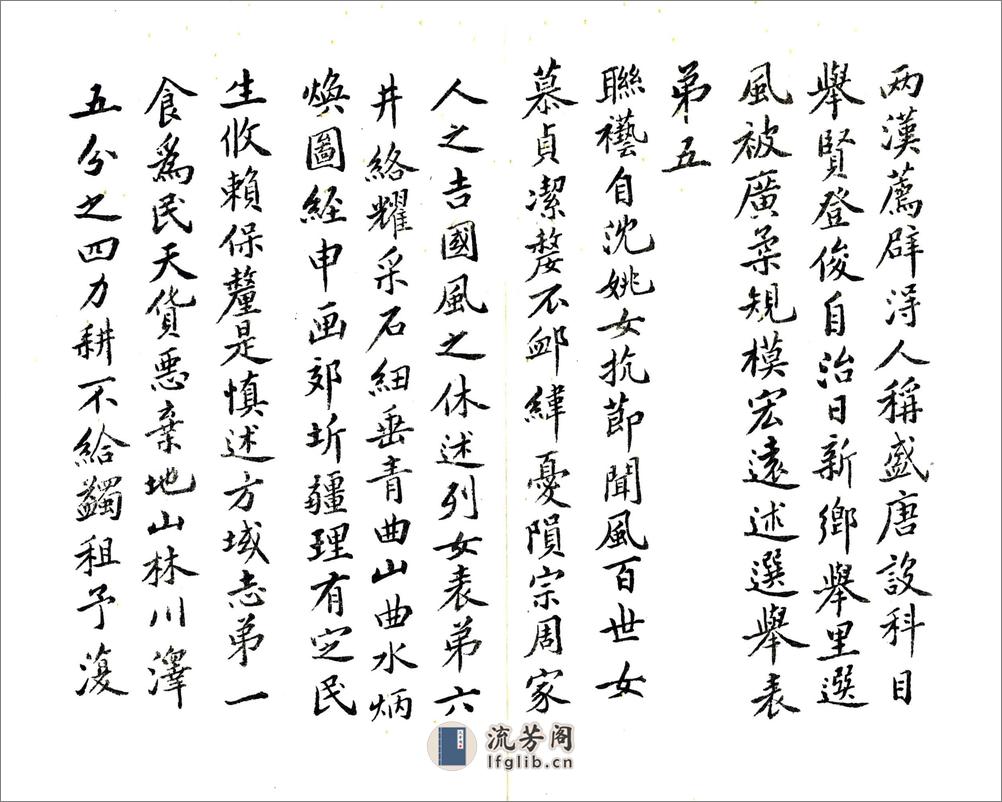 两漢薦辟淂人稱盛唐設科目
舉賢登俊自治日新鄉舉里選
風被廣柔規模宏遠述選舉表
弟五
聯襼自沈姚女抗節聞風百世女
慕貞潔嫠不衈緯憂隕宗周家
人之吉國風之休述列女表弟六
井絡耀采石細垂青曲山曲水炳
煥圖經申画郊圻疆理有定民
生攸賴保釐是慎述方域志弟一
食爲民天貨惡棄地山林川澤
五分之四力耕不給蠲租予澓
流芳阁
lfglib.cn